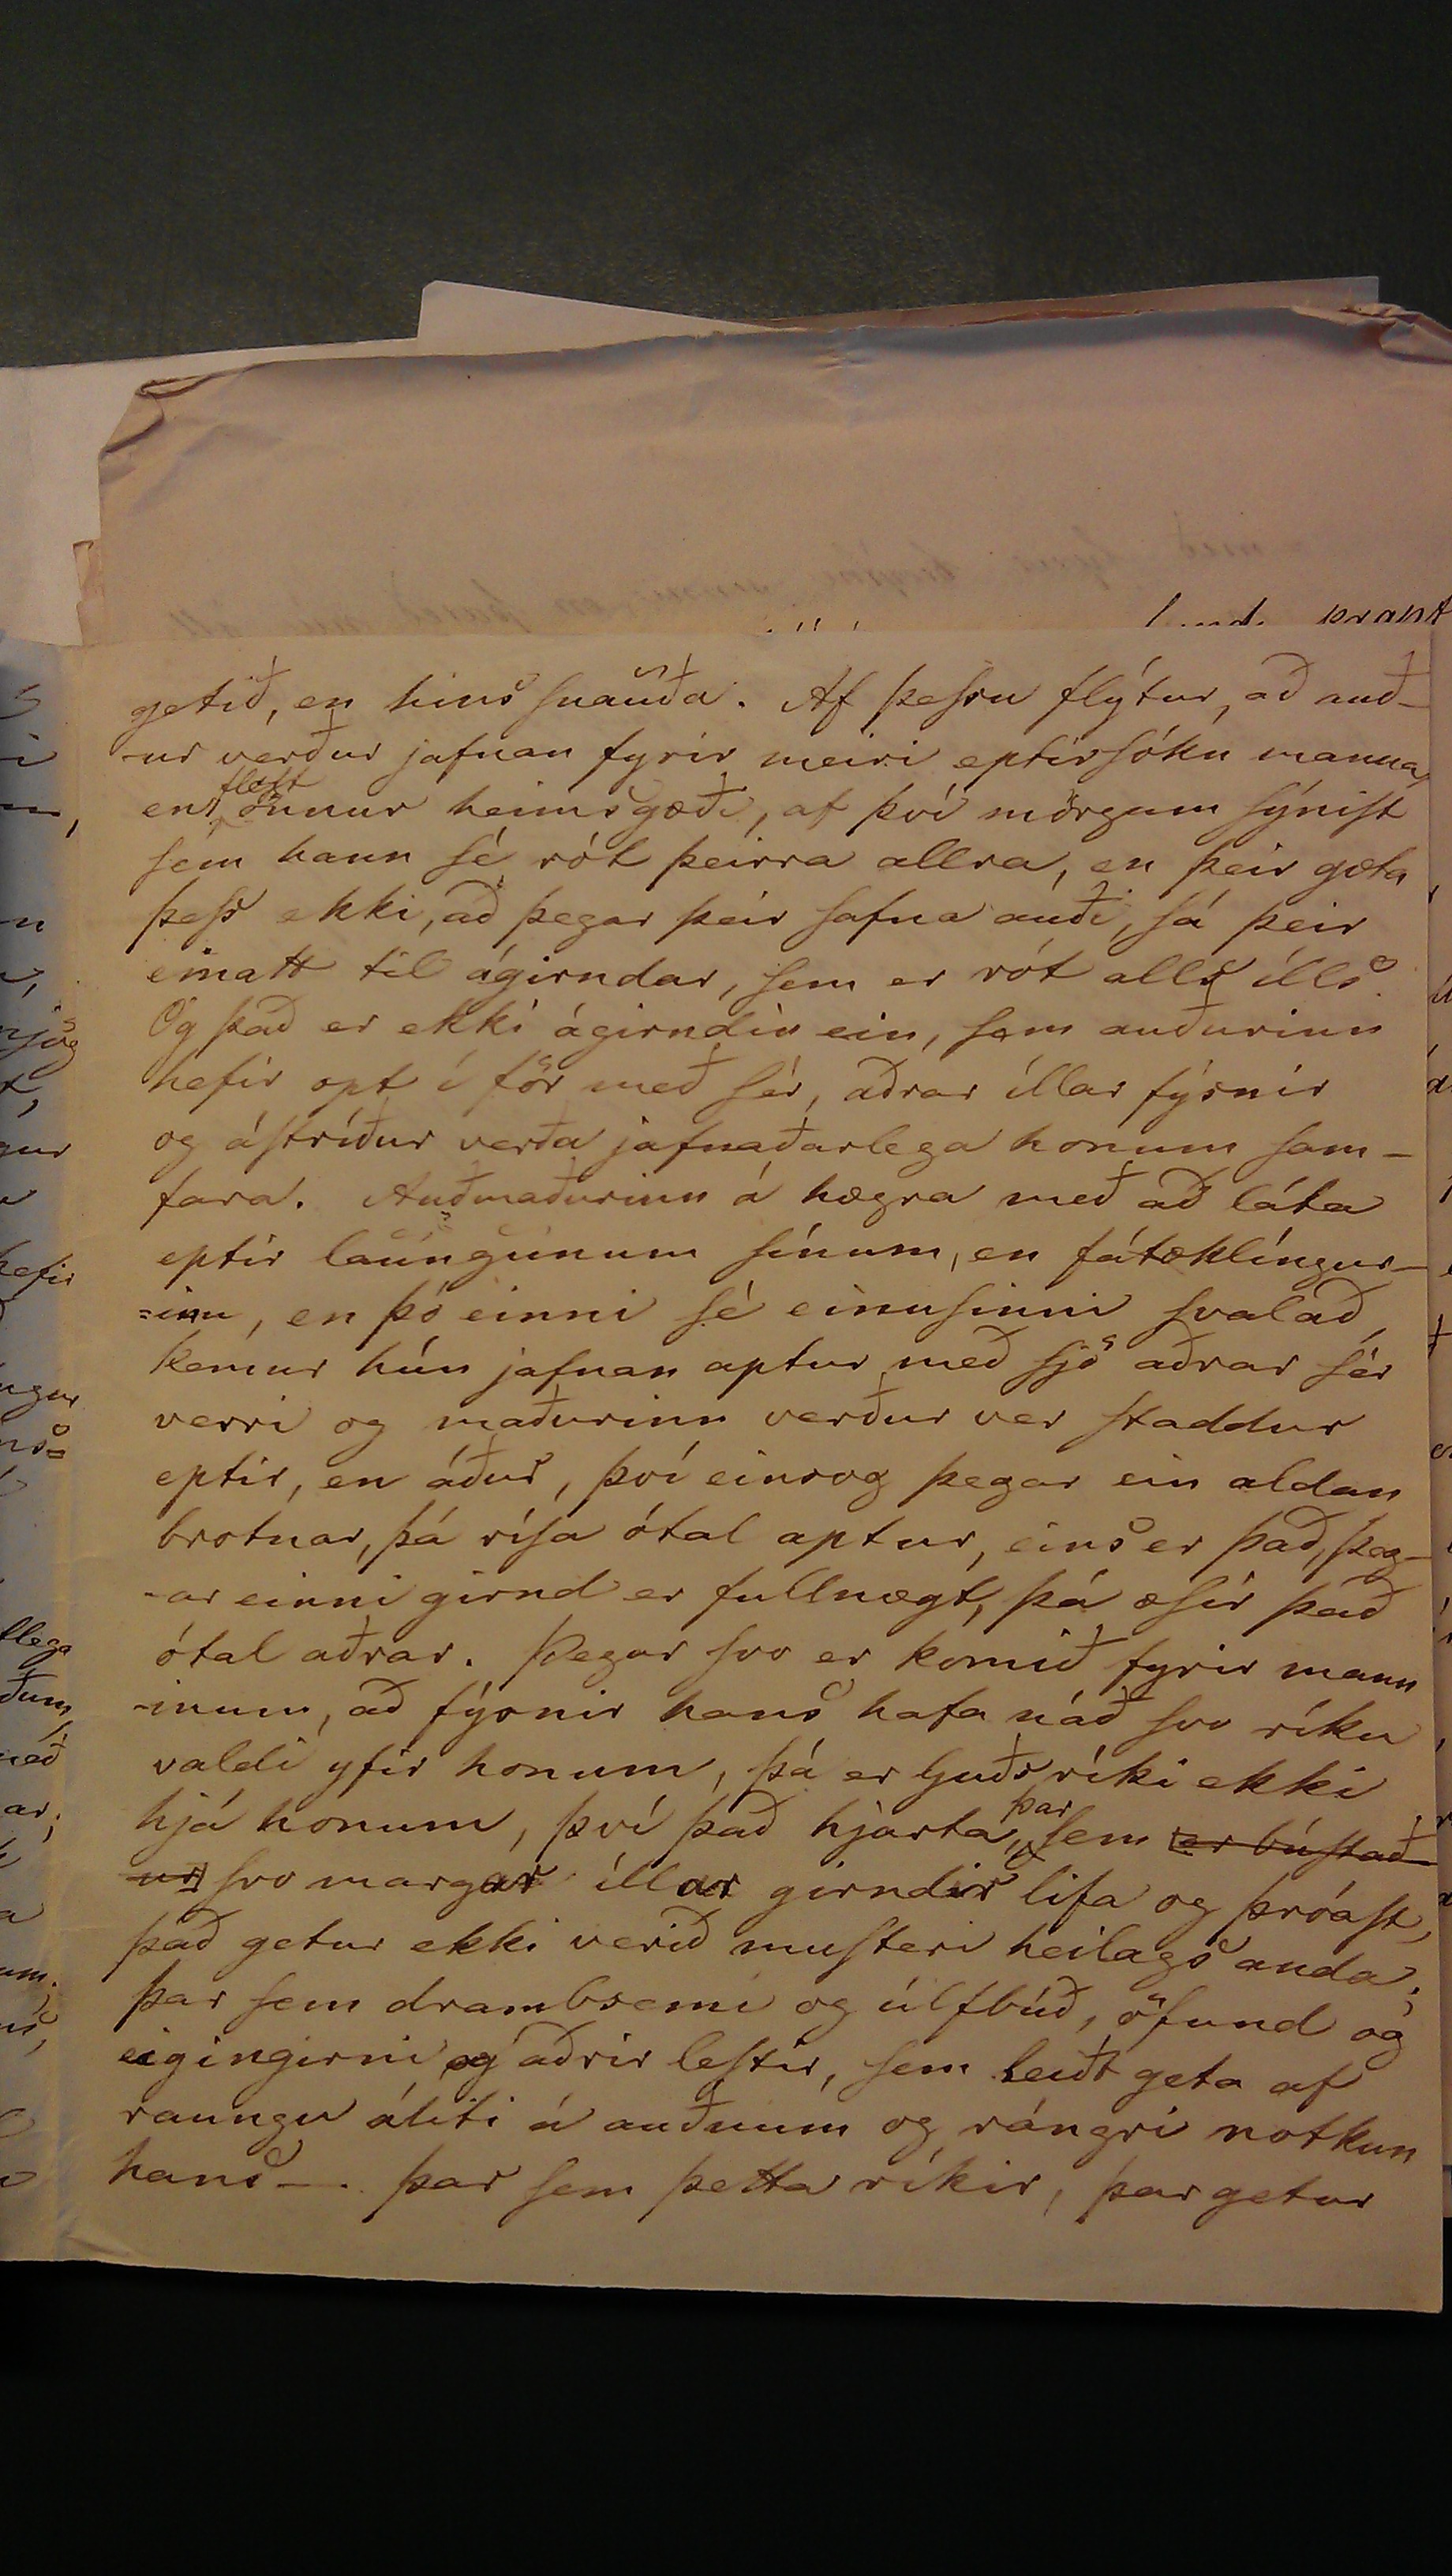 getið, en hins snauða. Af þessu flýtur, að auð-
-ur verður jafnan fyrir meiri eptirsókn manna,
en flest önnur heimsgæði, af því mörgum sýnist
sem hann sé rót þeirra allra, en þeir gæta
þess ekki, að þegar þeir safna auði, sá þeir
einatt til ágirndar, sem er rót alls ills.
Og það er ekki ágirndin ein, sem auðurinn
hefir opt í för með sér, aðrar íllar fýsnir
og ástríður verða jafnaðarlega honum sam-
fara. Auðmaðurinn á hægra með að láta
eptir laungunum sínum, en fátæklíngur-
=inn, en þó einni sé einusinni svalað,
kemur hún jafnan aptur með sjö aðrar sér
verri og maðurinn verður ver staddur
eptir, en áður, því einsog þegar ein aldan
brotnar, þá rísa ótal aptur, eins er það, þeg-
-ar einni girnd er fullnægt, þá æsir það
ótal aðrar. Þegar svo er komið fyrir mann
-inum, að fýsnir hans hafa náð svo ríku
valdi yfir honum, þá er Guðs ríki ekki
hjá honum, því það hjarta, þar sem er bústað-
ur svo margar íllar girndir lifa og þróast,
það getur ekki verið musteri heilags anda;
þar sem drambsemi og úlfbúð, öfund og
eigingirni og aðrir lestir, sem leidt geta af
raungu áliti á auðnum og rángri notkun
hans —. þar sem þetta ríkir, þar getur